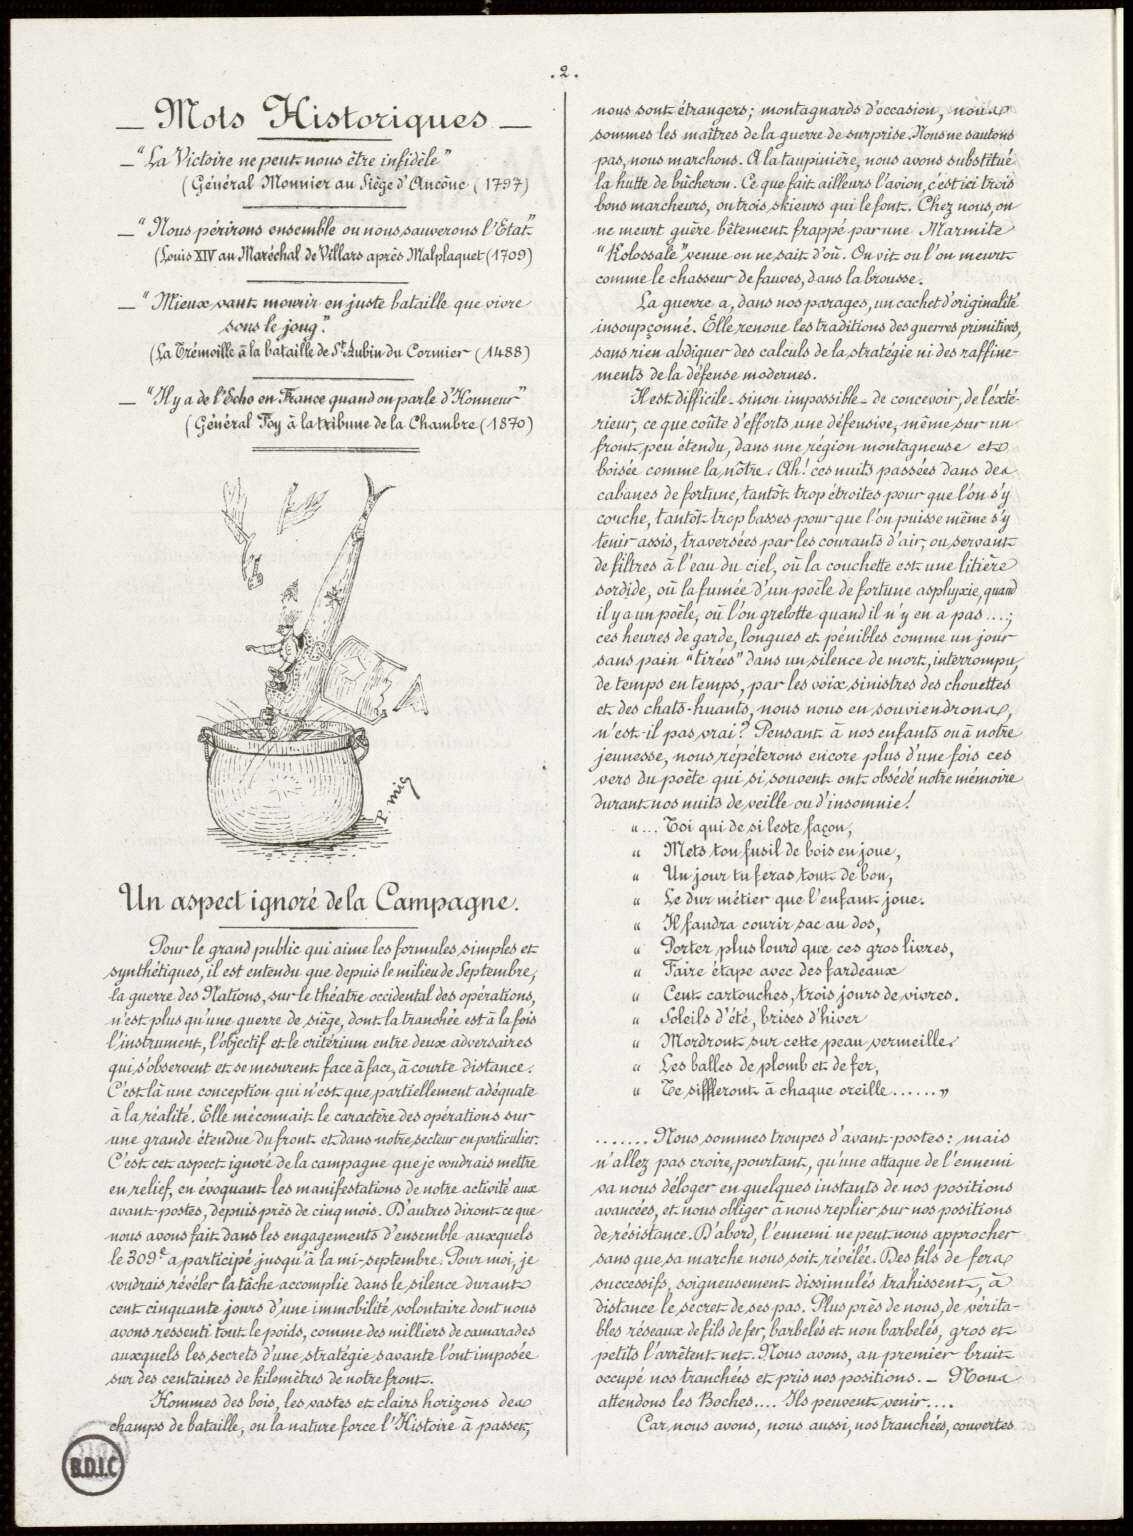 . 2 .
— Mots Historiques —
— "La Victoire ne peut nous être infidèle"
(Général Monnier au Siège d'Ancône (1797)
— "Nous périrons ensemble ou nous sauverons l'Etat"
(Louis XIV au Maréchal de Villars après Malplaquet (1709)
— "Mieux vaut mourir en juste bataille que vivre
sous le joug."
(La Trémoille à la bataille de St Aubin du Cormier (1488)
— "Il y a de l'Echo en France quand on parle d'Honneur"
(Général Foy à la tribune de la Chambre (1870)
P. mig
Un aspect ignoré de la Campagne.
Pour le grand public qui aime les formules simples et
synthétiques, il est entendu que depuis le milieu de Septembre,
la guerre des Nations, sur le théatre occidental des opérations,
n'est plus qu'une guerre de siège, dont la tranchée est à la fois
l'instrument, l'objectif et le critérium entre deux adversaires
qui s'observent et se mesurent face à face, à courte distance.
C'est là une conception qui n'est que partiellement adéquate
à la réalité. Elle méconnait le caractère des opérations sur
une grande étendue du front et dans notre secteur en particulier.
C'est cet aspect ignoré de la campagne que je voudrais mettre
en relief, en évoquant les manifestations de notre activité aux
avant-postes, depuis près de cinq mois. D'autres diront ce que
nous avons fait dans les engagements d'ensemble auxquels
le 309e a participé jusqu'à la mi-septembre. Pour moi, je
voudrais révéler la tâche accomplie dans le silence durant
cent cinquante jours d'une immobilité volontaire dont nous
avons ressenti tout le poids, comme des milliers de camarades
auxquels les secrets d'une stratégie savante l'ont imposée
sur des centaines de kilomètres de notre front.
Hommes des bois, les vastes et clairs horizons des
champs de bataille, ou la nature force l'Histoire à passer,
nous sont étrangers; montagnards d'occasion, nous
sommes les maîtres de la guerre de surprise. Nous ne sautons
pas, nous marchons. A la taupinière, nous avons substitué
la hutte de bûcheron. Ce que fait ailleurs l'avion, c'est ici trois
bons marcheurs, ou trois skieurs qui le font. Chez nous, on
ne meurt guère bêtement frappé par une Marmite
"Kolossale" venue on ne sait d'où. On vit ou l'on meurt
comme le chasseur de fauves, dans la brousse.
La guerre a, dans nos parages, un cachet d'originalité
insoupçonné. Elle renoue les traditions des guerres primitives,
sans rien abdiquer des calculs de la stratégie ni des raffine-
ments de la défense modernes.
Il est difficile - sinon impossible - de concevoir, de l'exté-
rieur, ce que coûte d'efforts une défensive, même sur un
front peu étendu, dans une région montagneuse et
boisée comme la nôtre. Ah! ces nuits passées dans des
cabanes de fortune, tantôt trop étroites pour que l'on s'y
couche, tantôt trop basses pour que l'on puisse même s'y
tenir assis, traversées par les courants d'air, ou servant
de filtres à l'eau du ciel, où la couchette est une litière
sordide, où la fumée d'un poêle de fortune asphyxie, quand
il y a un poêle, où l'on grelotte quand il n'y en a pas ...;
ces heures de garde, longues et pénibles comme un jour
sans pain "tirées" dans un silence de mort, interrompu,
de temps en temps, par les voix sinistres des chouettes
et des chats-huants, nous nous en souviendrons,
n'est-il pas vrai? Pensant à nos enfants ou à notre
jeunesse, nous répéterons encore plus d'une fois ces
vers du poète qui si souvent ont obsédé notre mémoire
durant nos nuits de veille ou d'insomnie!
"... Toi qui de si leste façon,
" Mets ton fusil de bois en joue,
" Un jour tu feras tout de bon,
" Le dur métier que l'enfant joue.
" Il faudra courir sac au dos,
" Porter plus lourd que ces gros livres,
" Faire étape avec des fardeaux
" Cent cartouches, trois jours de vivres.
" Soleils d'été, brises d'hiver
" Mordront sur cette peau vermeille.
" Les balles de plomb et de fer,
" Te siffleront à chaque oreille ......"
....... Nous sommes troupes d'avant-postes: mais
n'allez pas croire, pourtant, qu'une attaque de l'ennemi
va nous déloger en quelques instants de nos positions
avancées, et nous obliger à nous replier sur nos positions
de résistance. D'abord, l'ennemi ne peut nous approcher
sans que sa marche nous soit révélée. Des fils de fers
successifs, soigneusement dissimulés trahissent, à
distance le secret de ses pas. Plus près de nous, de vérita-
bles réseaux de fils de fer, barbelés et non barbelés, gros et
petits l'arrêtent net. Nous avons, au premier bruit
occupé nos tranchées et pris nos positions. - Nous
attendons les Boches.... Ils peuvent venir....
Car nous avons, nous aussi, nos tranchées, couvertes
B.D.I.C